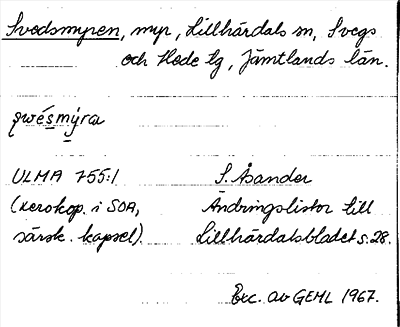 Svedsmyren, myr, Lillhärdals sn, Svegs
och Hede tg, Jämtlands län.
ULMA 755:1 S. Åsander
(xerokop. i SOA, Ändringslistor till
särsk. kapsel). Lillhärdalsbladet s. 28.
Exc. av GEHL 1967.